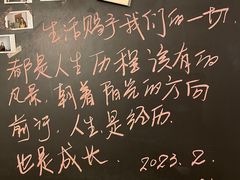 生活赐予我们的一切.
都是人生历程该有的
风景,朝着阳光的方向
前行,人生是经历.
也是成长. 2023.2.